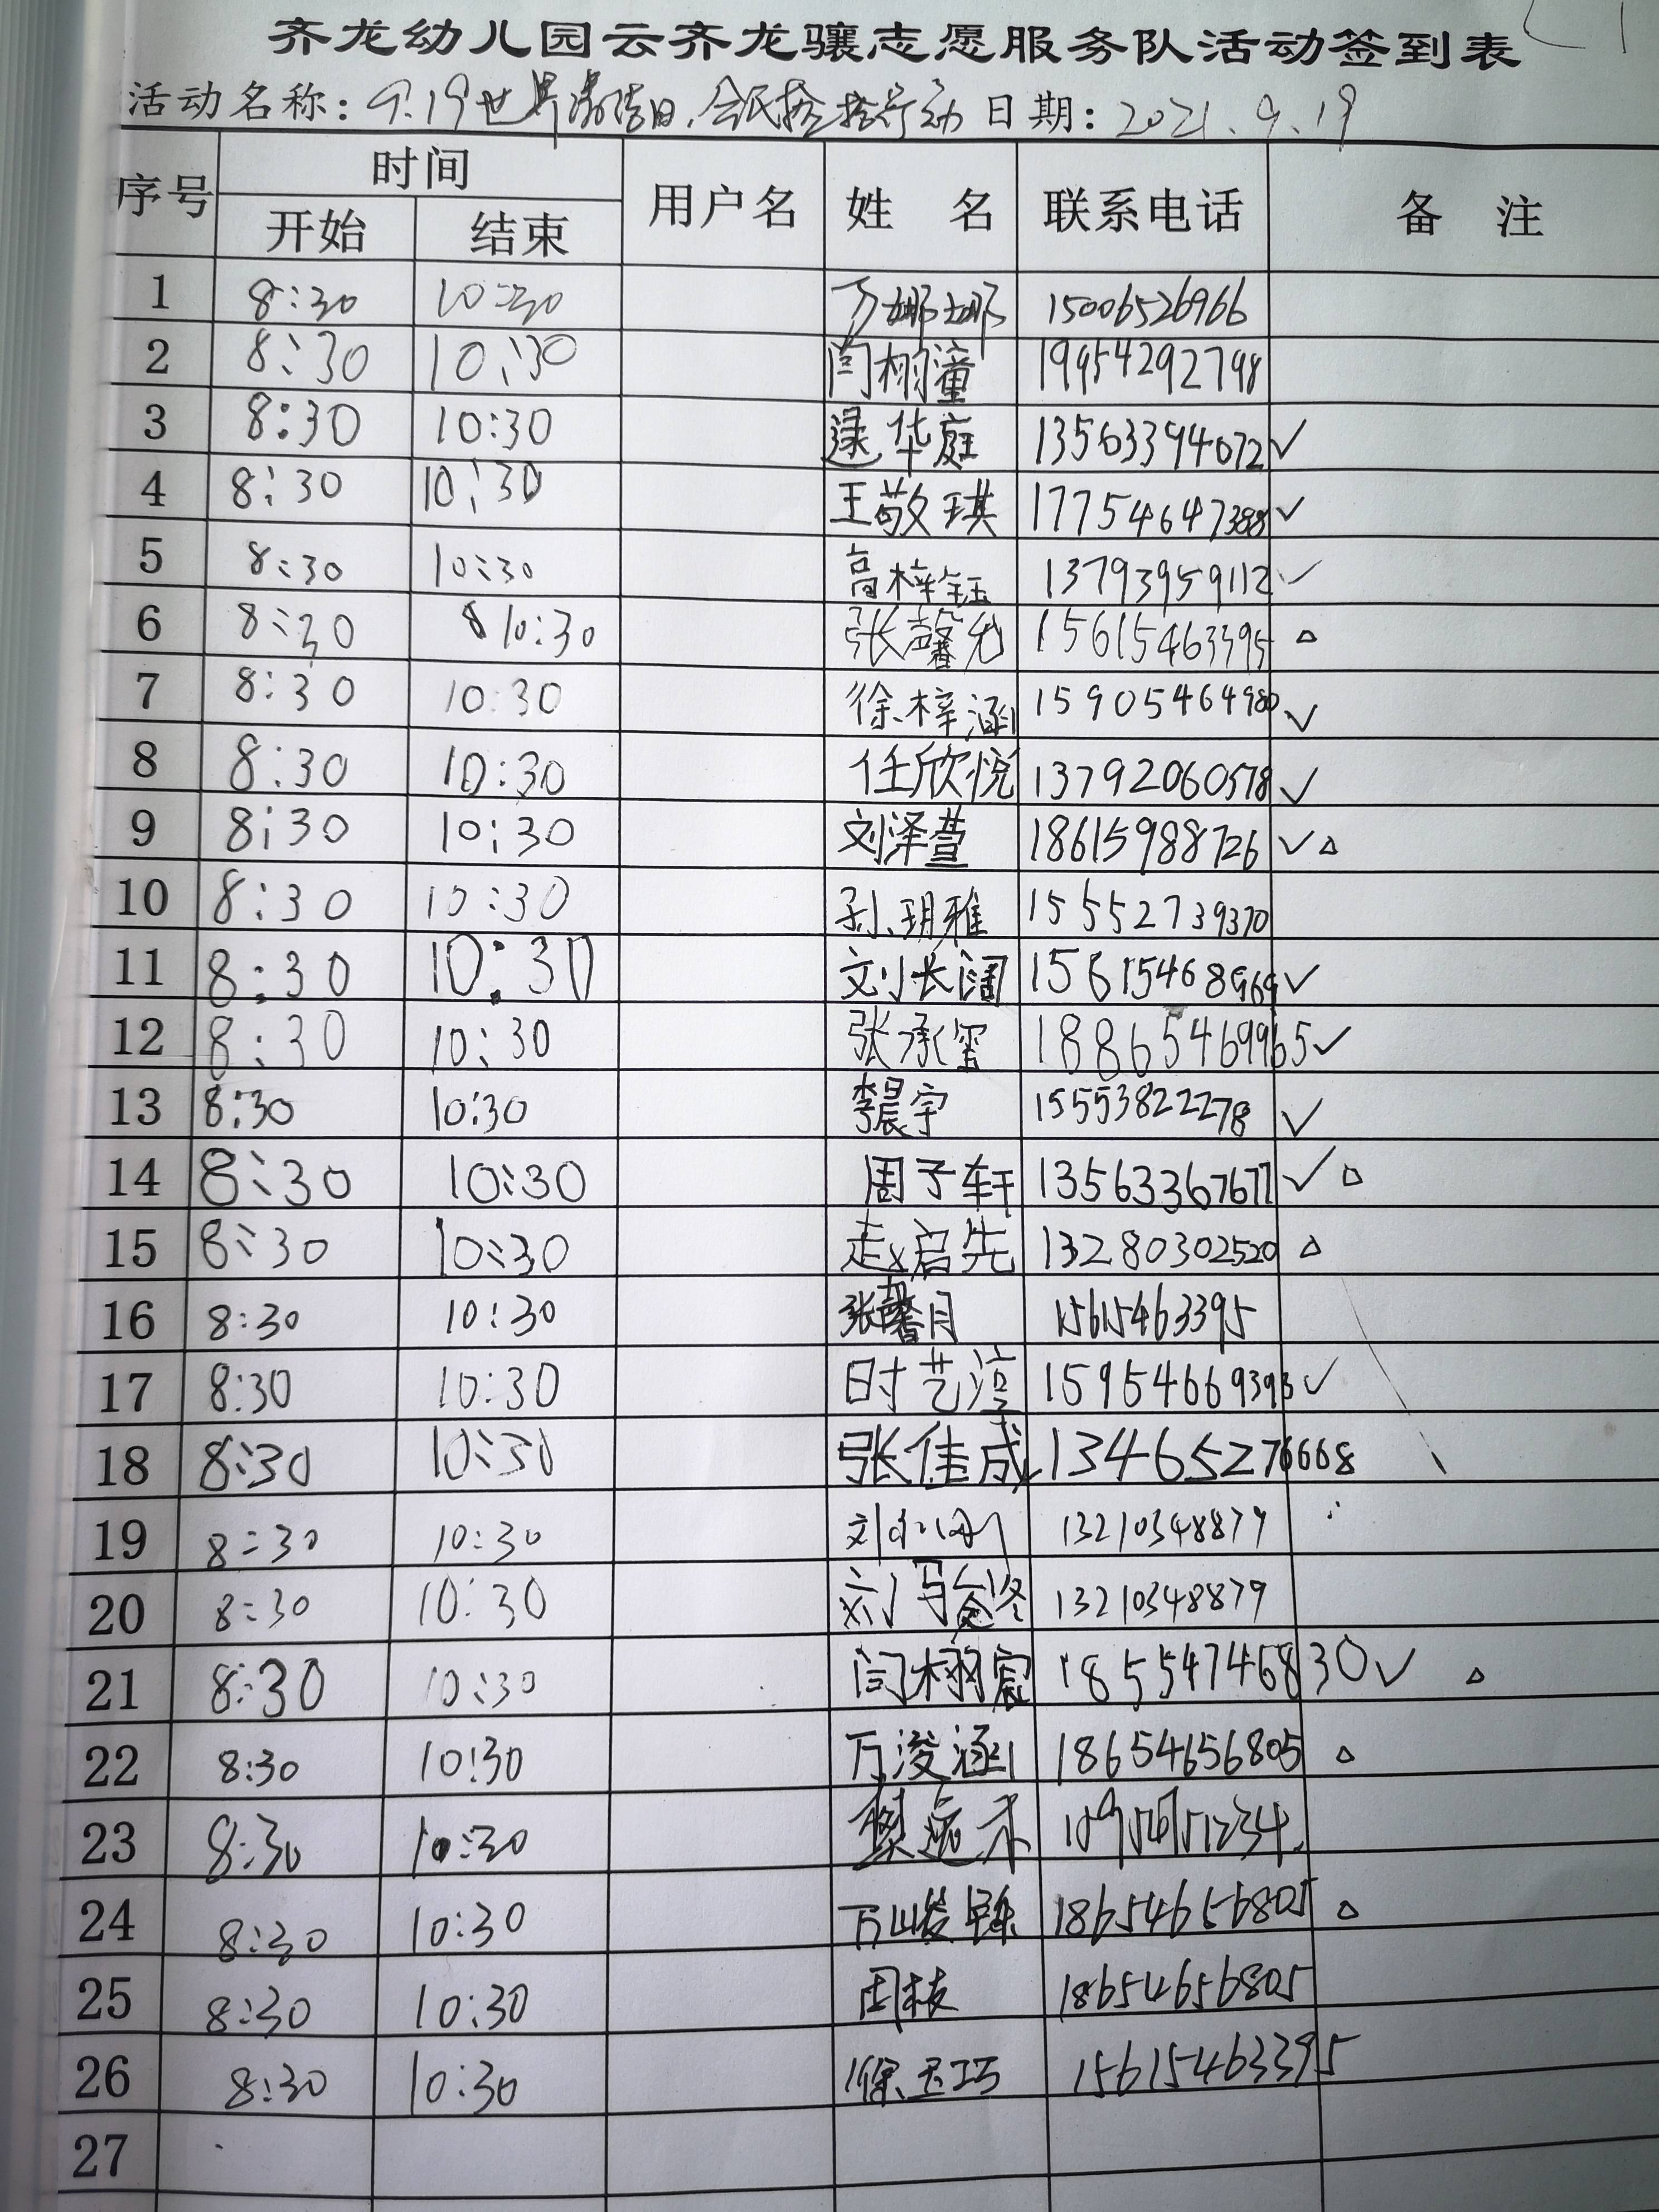 齐龙幼儿园云齐龙骧志愿服务队活动签到表
活动名称：9.19世界清洁日，全民捡拾行动 日期：2021.9.19
序号 时间 用户名 姓名 联系电话 备注
开始 结束
1 8:30 10:30 万娜娜 15006526966
2 8:30 10:30 闫栩潼 19954292798
3 8:30 10:30 逯华庭 13563394072 ✓
4 8:30 10:30 王敬琪 17754647388 ✓
5 8:30 10:30 高梓钰 13793959112 ✓
6 8:30 10:30 张馨允 15615463395 △
7 8:30 10:30 徐梓涵 15905464980 ✓
8 8:30 10:30 任欣悦 13792060578 ✓
9 8:30 10:30 刘泽萱 18615988726 ✓△
10 8:30 10:30 孙玥雅 15552739370
11 8:30 10:30 刘长阔 15615468969 ✓
12 8:30 10:30 张承玺 18865469965 ✓
13 8:30 10:30 李晨宇 15553822278 ✓
14 8:30 10:30 周子轩 13563367677 ✓△
15 8:30 10:30 赵启先 13280302520 △
16 8:30 10:30 张馨月 15615463395
17 8:30 10:30 时艺淳 15954669393 ✓
18 8:30 10:30 张佳成 13465276668
19 8:30 10:30 刘 13210348879
20 8:30 10:30 刘 13210348879
21 8:30 10:30 闫栩宸 18554746830 ✓ △
22 8:30 10:30 万浚涵 18654656805 △
23 8:30 10:30
24 8:30 10:30 万峻 18654656805 △
25 8:30 10:30 周枝 18654656805
26 8:30 10:30 徐玉巧 15615463395
27